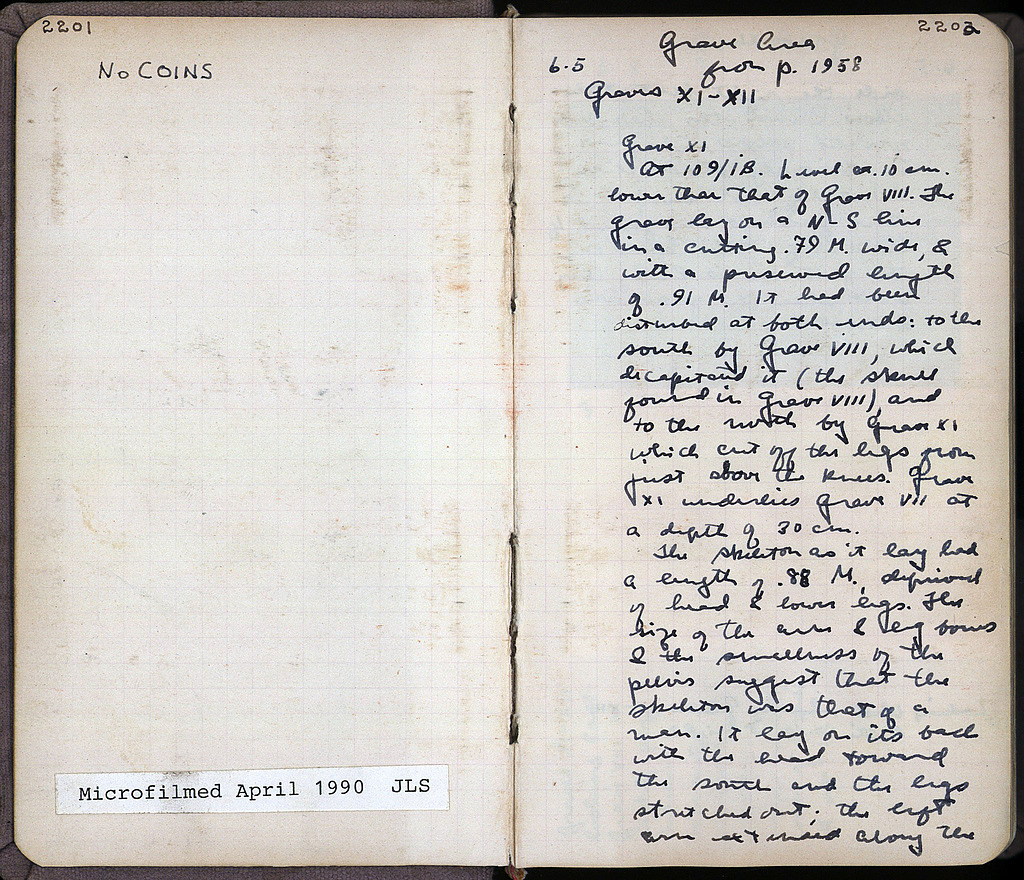 2201
No COINS
Microfilmed April 1990 JLS
2202
Grave Area
6.5 from p. 1958
Graves XI-XII
Grave XI
At 109/IB. Level ca. 10 cm.
lower than that of Grave VIII. The
grave lay on a N-S line
in a cutting .79 M. wide, &
with a preserved length
of .91 M. It had been
disturbed at both ends: to the
south by Grave VIII, which
decapitated it (the skull
found in Grave VIII), and
to the north by Grave XI
which cut off the legs from
just above the knees. Grave
XI underlies Grave VII at
a depth of 30 cm.
The skeleton as it lay had
a length of .88 M, deprived
of head & lower legs. The
size of the arm & leg bones
& the smallness of the
pelvis suggest that the
skeleton was that of a
man. It lay on its back
with the head toward
the south and the legs
stretched out; the left
arm extended along the